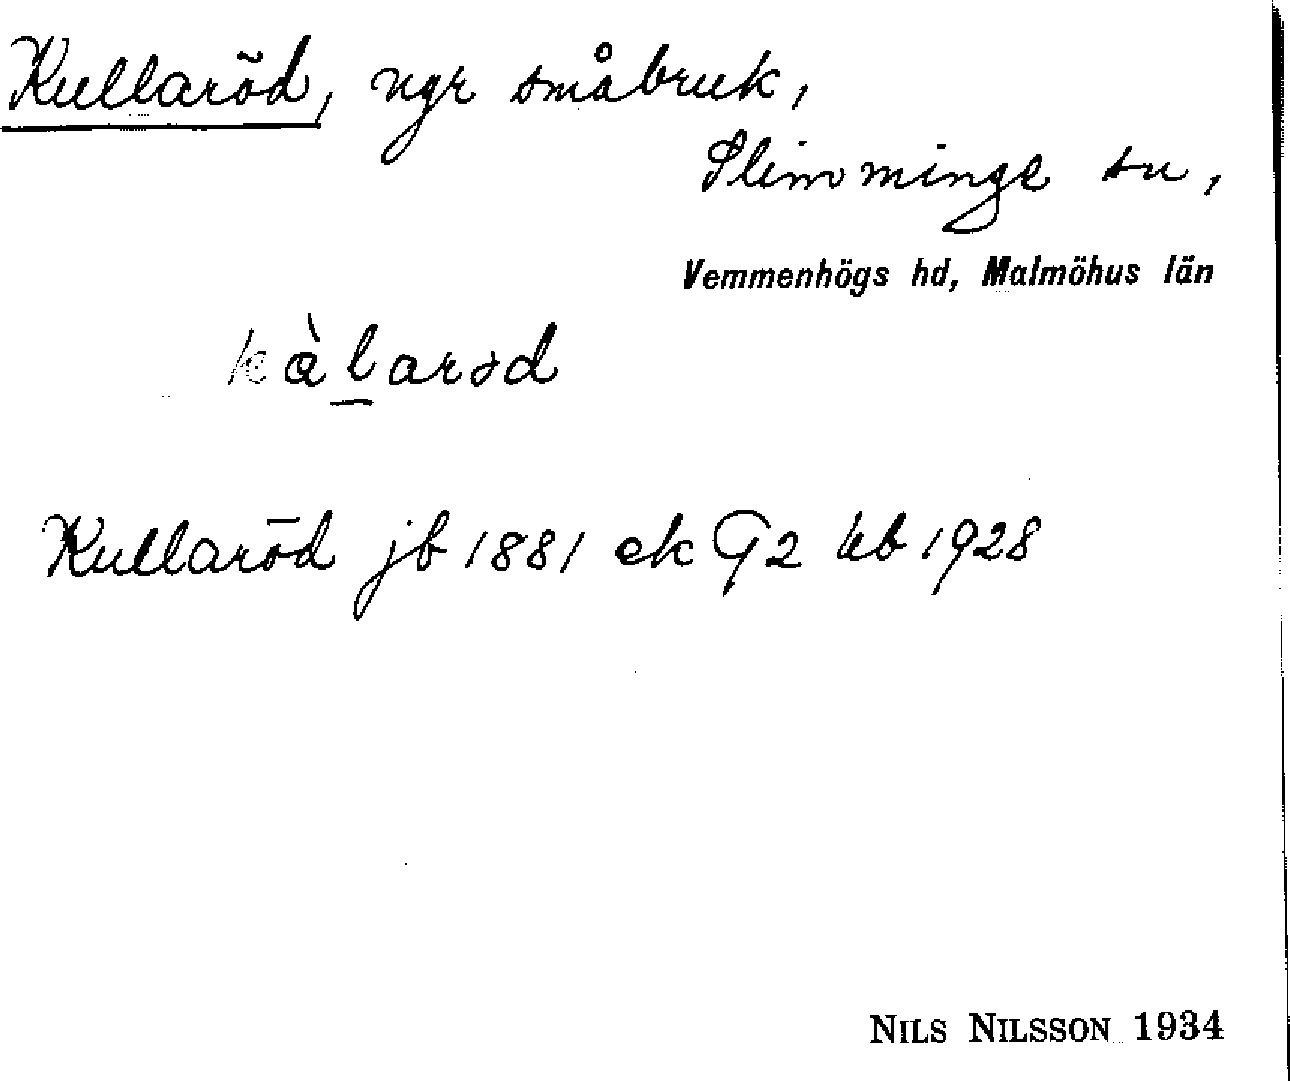 Kullaröd, ngr småbruk,
Slimminge sn,
Vemmenhögs hd, Malmöhus län
kàlarəd
Kullaröd jb 1881 ek G2 kb 1928
NILS NILSSON 1934